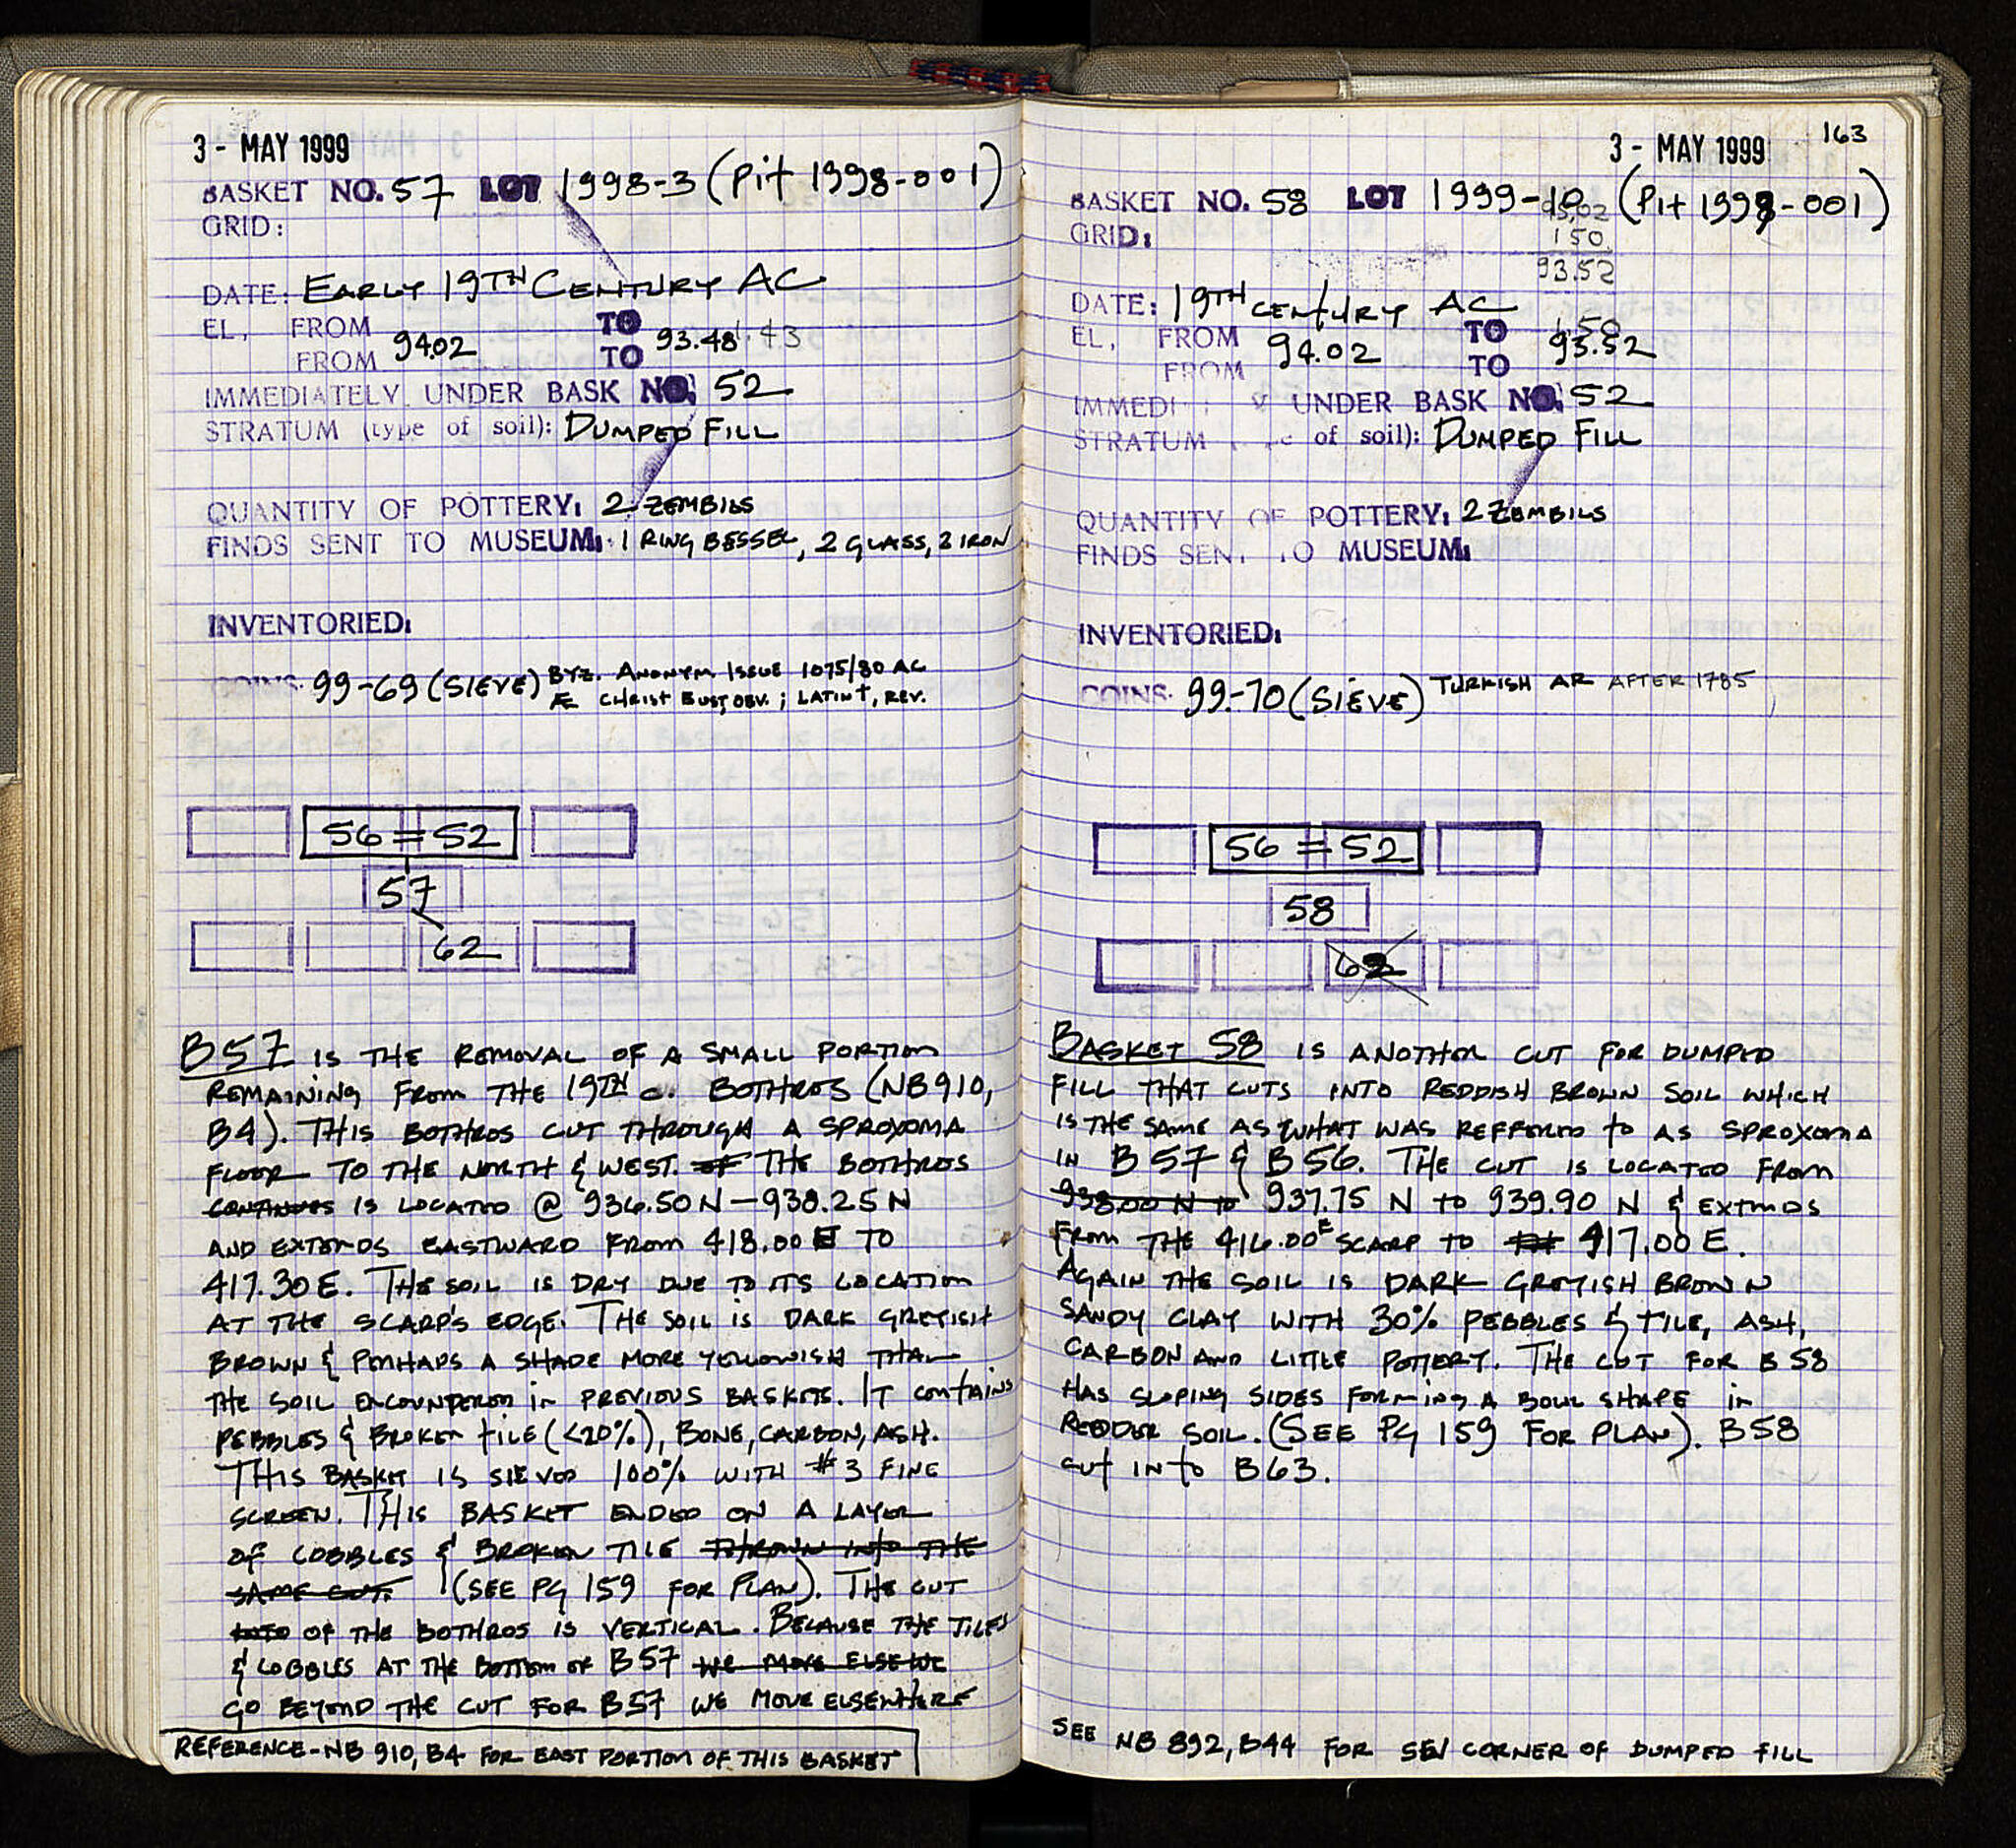 3 - MAY 1999
BASKET NO. 57 LOT 1998-3 (Pit 1998-001)
GRID:
DATE: EARLY 19TH CENTURY AC
EL, FROM 94.02 TO 93.48
FROM TO
IMMEDIATELY UNDER BASK NO. 52
STRATUM (type of soil): DUMPED FILL
QUANTITY OF POTTERY: 2 ZEMBILS
FINDS SENT TO MUSEUM: 1 RING BESSEL, 2 GLASS, 2 IRON
INVENTORIED:
COINS: 99-69 (SIEVE) BYZ. ANONYM. ISSUE 1075/80 AC
Æ CHRIST BUST, OBV.; LATIN †, REV.
56 = 52
57
62
B57 IS THE REMOVAL OF A SMALL PORTION
REMAINING FROM THE 19TH C. BOTHROS (NB910,
B4). THIS BOTHROS CUT THROUGH A SPROXOMA
FLOOR TO THE NORTH & WEST. OF THE BOTHROS
CONTINUES IS LOCATED @ 936.50 N – 938.25 N
AND EXTENDS EASTWARD FROM 418.00 E TO
417.30 E. THE SOIL IS DRY DUE TO ITS LOCATION
AT THE SCARP'S EDGE. THE SOIL IS DARK GREYISH
BROWN & PERHAPS A SHADE MORE YELLOWISH THAN
THE SOIL ENCOUNTERED IN PREVIOUS BASKETS. IT CONTAINS
PEBBLES & BROKEN TILE (<20%), BONE, CARBON, ASH.
THIS BASKET IS SIEVED 100% WITH #3 FINE
SCREEN. THIS BASKET ENDED ON A LAYER
OF COBBLES & BROKEN TILE THROWN INTO THE
SAME CUT. (SEE PG 159 FOR PLAN). THE CUT
INTO OF THE BOTHROS IS VERTICAL. BECAUSE THE TILES
& COBBLES AT THE BOTTOM OF B57 WE MOVE ELSEWE
GO BEYOND THE CUT FOR B57 WE MOVE ELSEWHERE
REFERENCE - NB 910, B4 FOR EAST PORTION OF THIS BASKET
3 - MAY 1999
163
BASKET NO. 58 LOT 1999-10 (Pit 1998-001)
GRID:
150
93.52
DATE: 19TH CENTURY AC
EL, FROM 94.02 TO 93.52
FROM TO
IMMEDI UNDER BASK NO. 52
STRATUM of soil): DUMPED FILL
QUANTITY OF POTTERY: 2 ZEMBILS
FINDS SENT TO MUSEUM:
INVENTORIED:
COINS: 99-70 (SIEVE) TURKISH AR AFTER 1785
56 = 52
58
62
BASKET 58 IS ANOTHER CUT FOR DUMPED
FILL THAT CUTS INTO REDDISH BROWN SOIL WHICH
IS THE SAME AS WHAT WAS REFFERED TO AS SPROXOMA
IN B57 & B56. THE CUT IS LOCATED FROM
938.00 N to 937.75 N to 939.90 N & EXTENDS
FROM THE 416.00 E SCARP TO 417.00 E.
AGAIN THE SOIL IS DARK GREYISH BROWN
SANDY CLAY WITH 30% PEBBLES & TILE, ASH,
CARBON AND LITTLE POTTERY. THE CUT FOR B58
HAS SLOPING SIDES FORMING A BOWL SHAPE IN
REDDER SOIL. (SEE PG 159 FOR PLAN). B58
CUT INTO B63.
SEE NB 892, B44 FOR SW CORNER OF DUMPED FILL